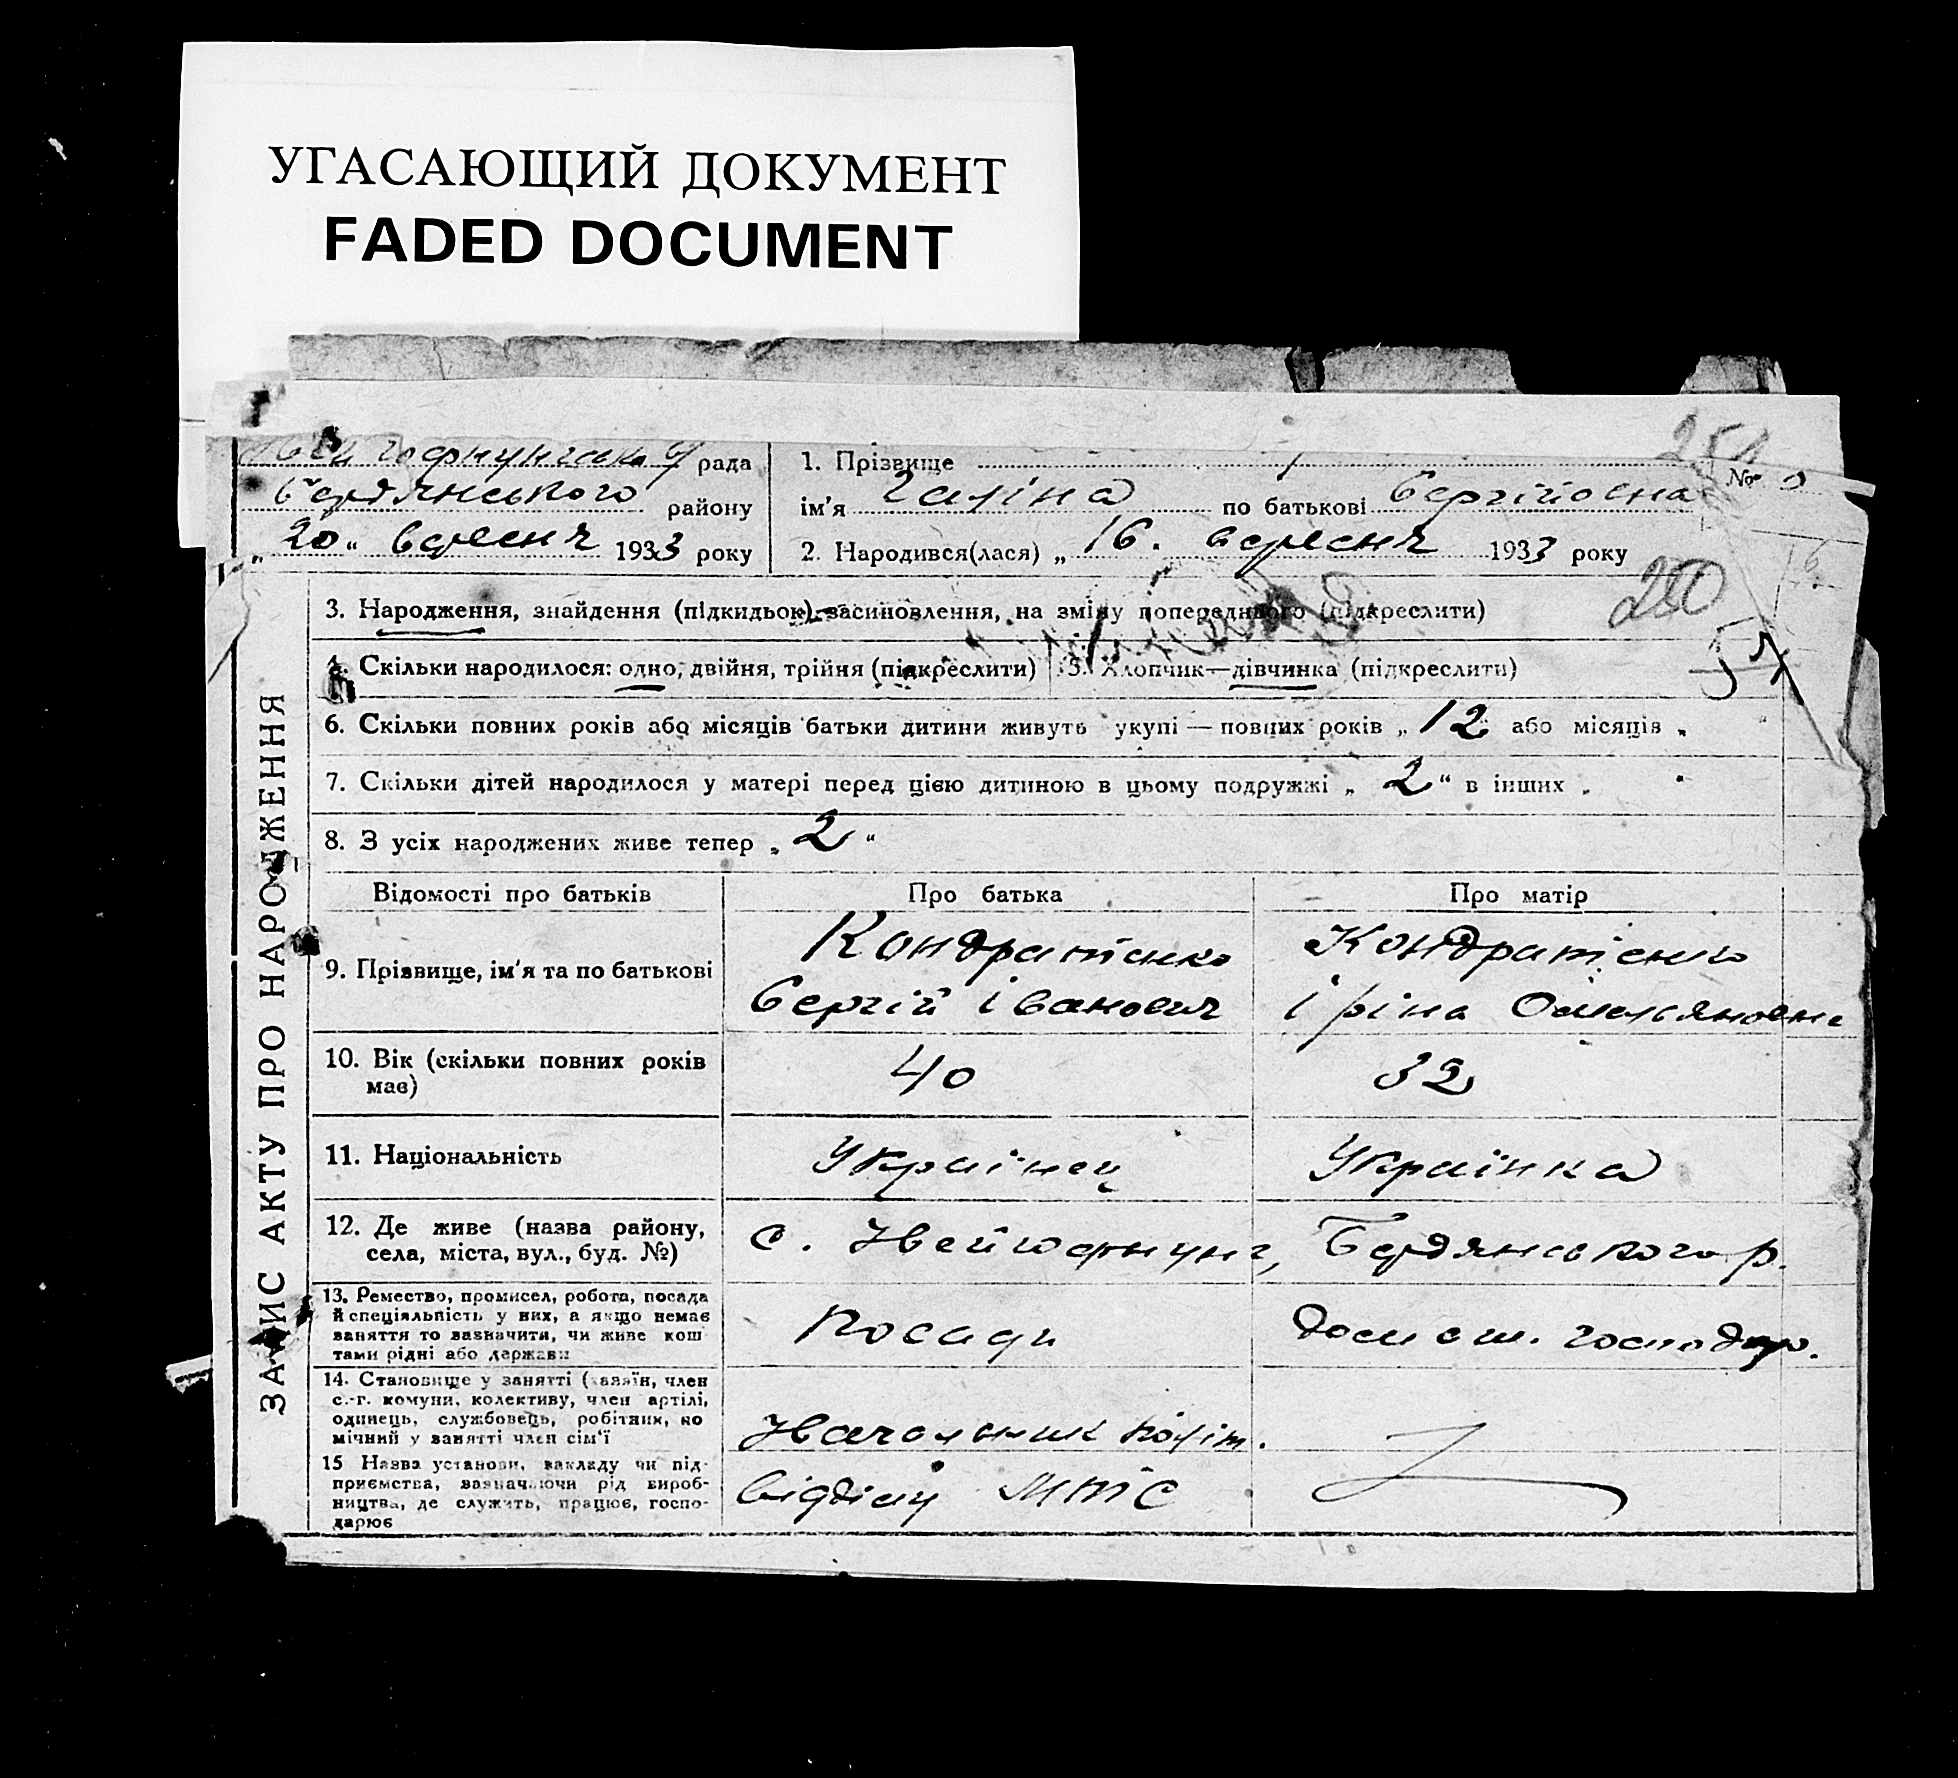 УГАСАЮЩИЙ ДОКУМЕНТ
FADED DOCUMENT
рада
Бердянського району
„ 20 “ вересня 1933 року
1. Прізвище
ім'я Галіна по батькові Сергійовна
№
2. Народився(лася) „ 16. вересня 1933 року
3. Народження, знайдення (підкидьок), засиновлення, на зміну попереднього (підкреслити)
200
4. Скільки народилося: одно, двійня, трійня (підкреслити)
5. Хлопчик—дівчинка (підкреслити)
6. Скільки повних років або місяців батьки дитини живуть укупі — повних років „ 12 “ або місяців „ “
7. Скільки дітей народилося у матері перед цією дитиною в цьому подружжі „ 2 “ в інших „
8. З усіх народжених живе тепер „ 2 “
ЗАПИС АКТУ ПРО НАРОДЖЕННЯ
Відомості про батьків
Про батька
Про матір
9. Прізвище, ім'я та по батькові
Кондратенко
Сергій Іванович
Кондратенко
Іріна Омельяновна
10. Вік (скільки повних років
має)
40
32
11. Національність
Українец
Українка
12. Де живе (назва району,
села, міста, вул., буд. №)
с. Нейгофнунг, Бердянського р.
13. Ремество, промисел, робота, посада
й спеціяльність у них, а якщо немає
заняття то зазначити, чи живе кош
тами рідні або держави
Посади
домаш. господар.
14. Становище у занятті (хазяїн, член
с.-г. комуни, колективу, член артілі,
одинець, службовець, робітник, по
мічний у занятті член сім'ї
Начальник політ.
15 Назва установи, закладу чи під-
приємства, зазначаючи рід вироб-
ництва, де служить, працює, госпо-
дарює
відділу МТС